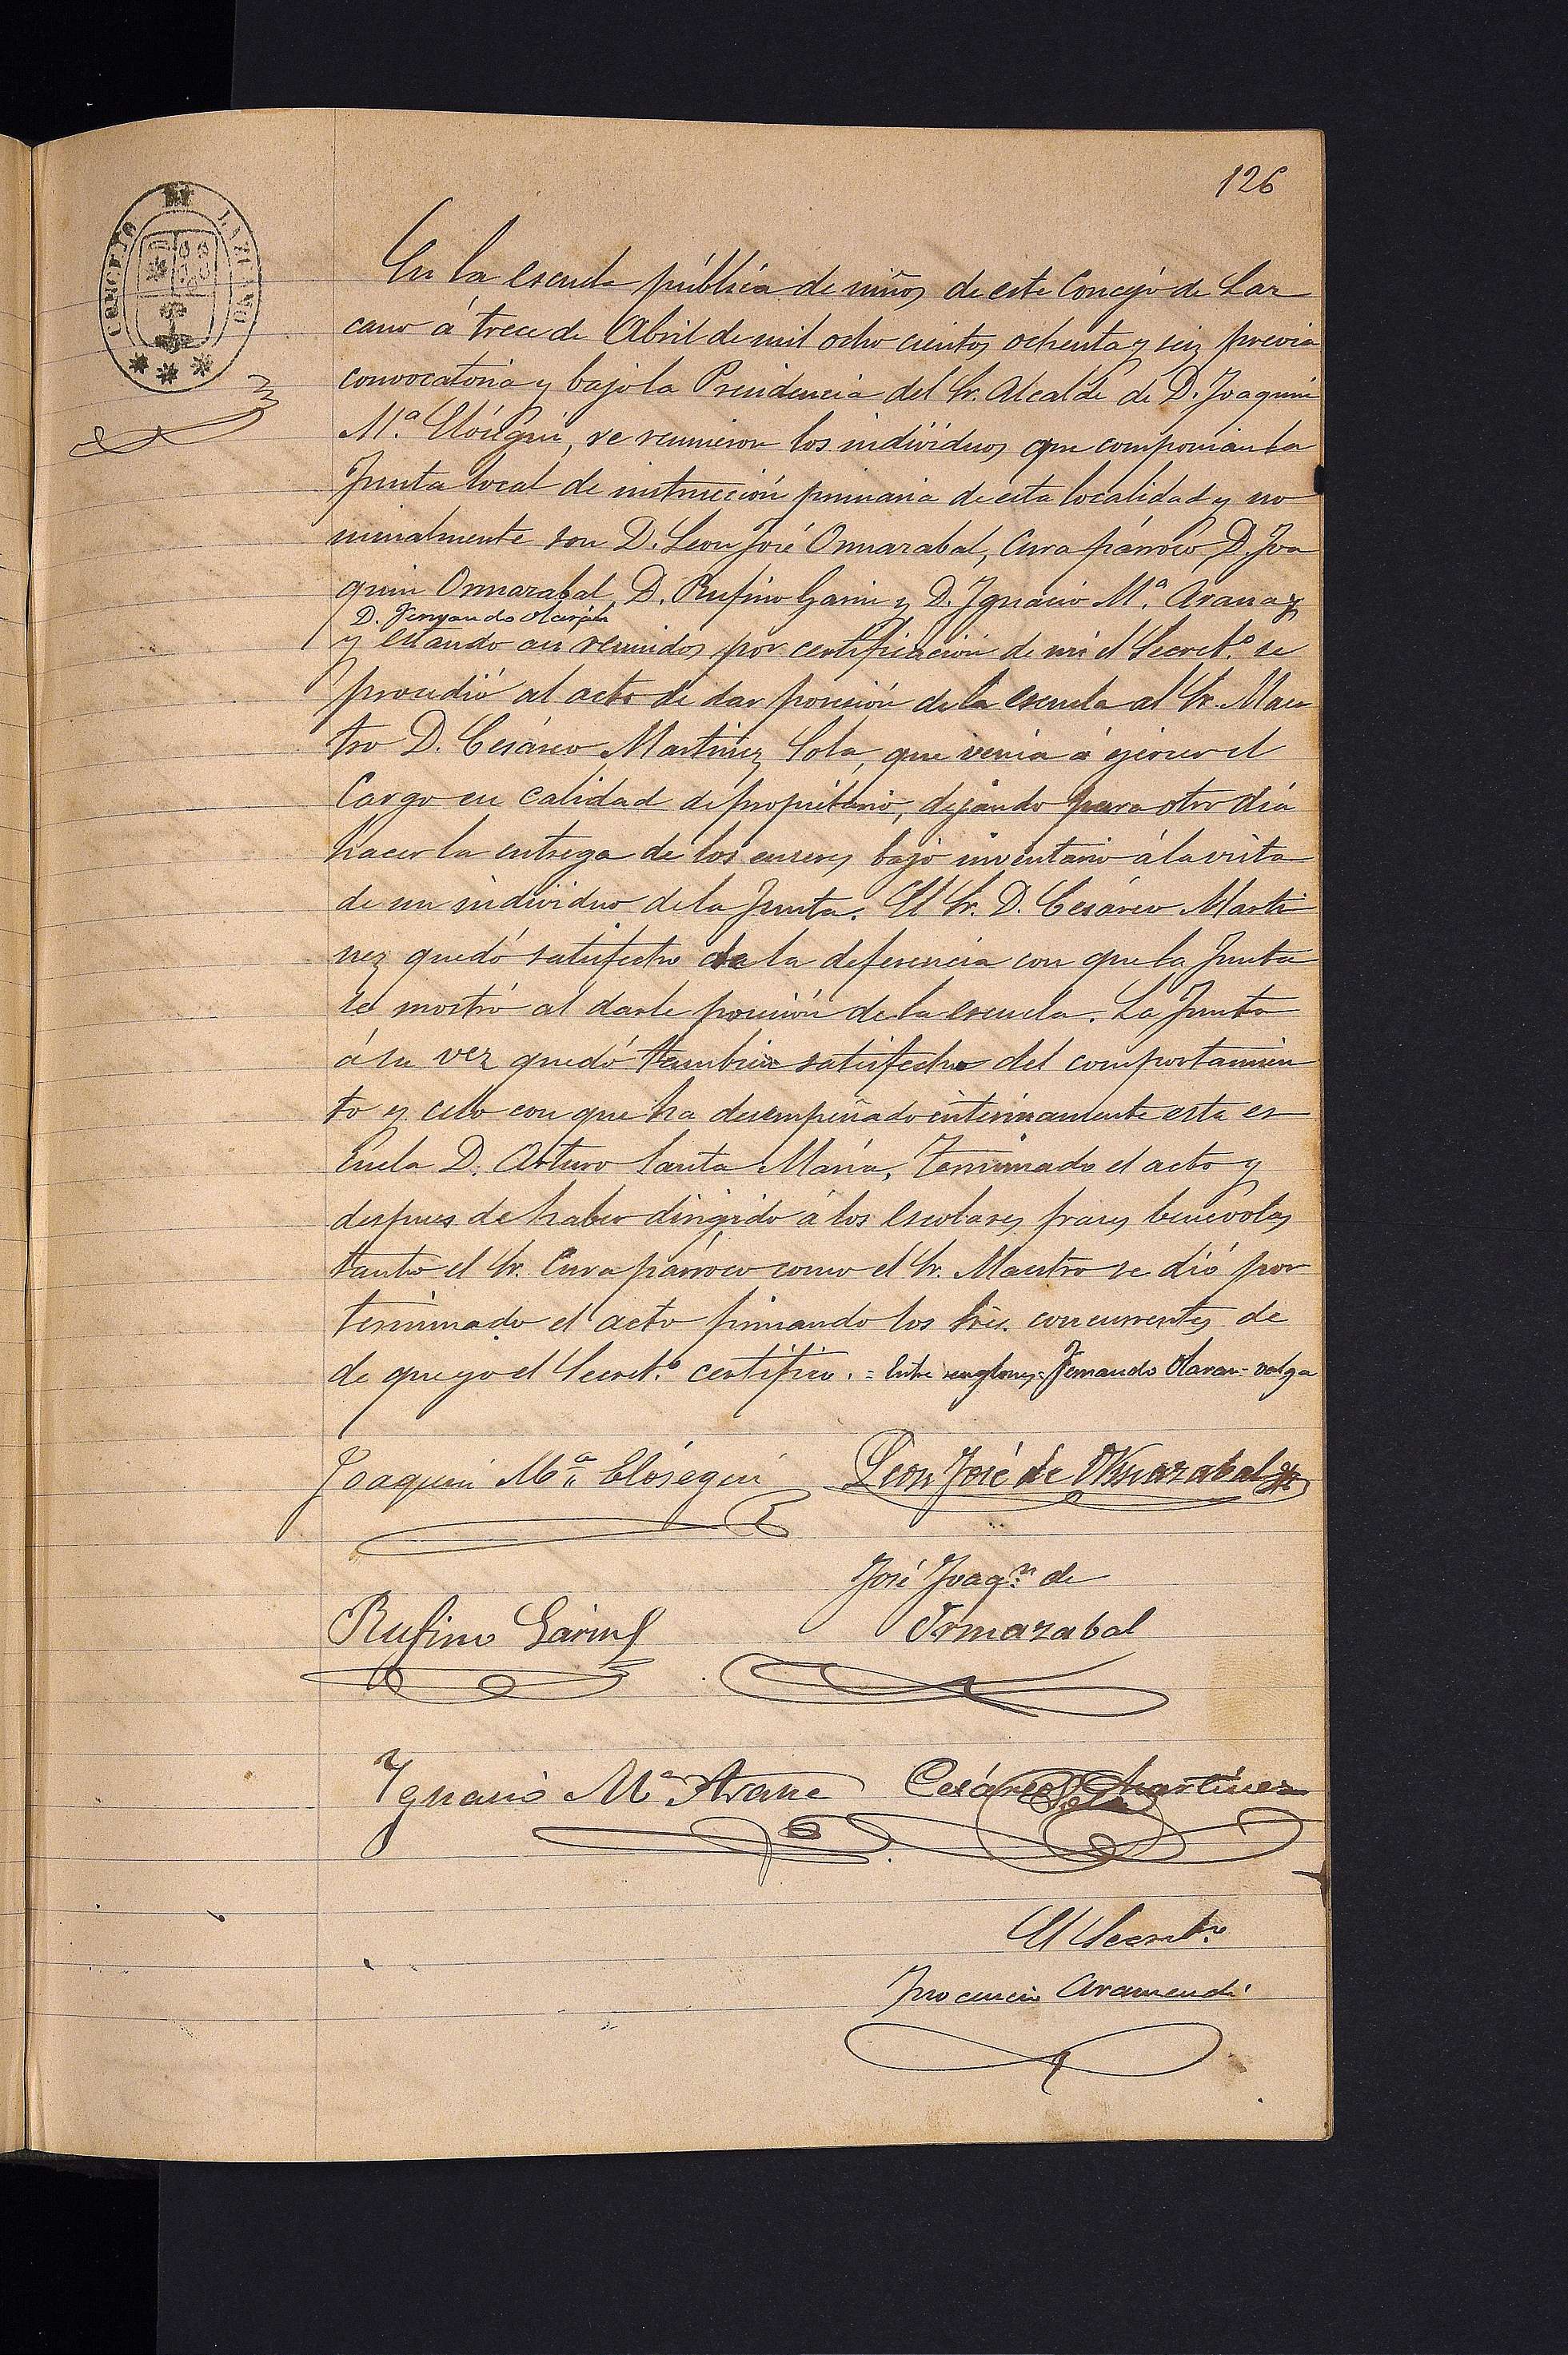 126
CONCEJO DE LAZCANO
En la escuela pública de niños de este Concejo de Laz
cano á trece de Abril de mil ocho cientos ochenta y seis previa
convocatoria y bajo la Presidencia del Sr. Alcalde de D. Joaquin
M.ª Elósegui, se reunieron los individuos que componian la
Junta local de instrucción primaria de esta localidad y no
minalmente son D. Leon José Ormazabal, Cura párroco, D. Joa
quin Ormazabal D. Rufino Garin y D. Ignacio M.ª Arana y
D. Fernando
y estando asi reunidos por certificación de mi el Secret.º se
procedió al acto de dar posesión de la escuela al Sr. Maes
tro D. Cesáreo Martinez Sola, que venia á ejercer el
Cargo en calidad de propietario, dejando para otro dia
hacer la entrega de los enseres bajo inventario á la vista
de un individuo de la Junta. El Sr. D. Cesáreo Marti
nez quedó satisfecho de la deferencia con que la Junta
se mostró al darle posesión de la escuela. La Junta
á su vez quedó tambien satisfecha del comportamien
to y celo con que ha desempeñado interinamente esta es
cuela D. Arturo Santa Maria. Terminado el acto y
despues de haber dirigido á los escolares frases benévolas
tanto el Sr. Cura párroco como el Sr. Maestro se dió por
terminado el acto firmando los Sres. concurrentes de
de que yo el Secret.º certifico. = Entre renglones = Fernando Olaran = valga
Joaquin M.ª Elósegui Leon José de Ormazabal
José Joaq.n de
Rufino Garin Ormazabal
Ignacio M.ª Arana Cesáreo Martínez
Sola
El Secret.rio
Inocencio Aramendi